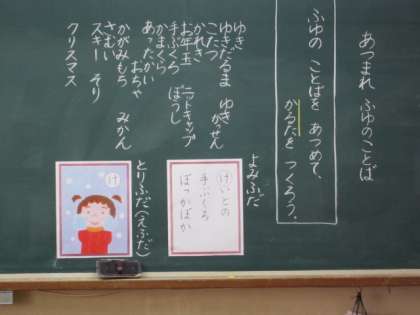 あつまれ ふゆのことば
ふゆの ことばを あつめて、
かるたを つくろう。
ゆき
ゆきだるま ゆきがっせん
こたつ
かれき
お年玉 ニットキャップ
手ぶくろ ぼうし
かまくら
あったかい おちゃ
かがみもち みかん
さむい
スキー そり
クリスマス
よみふだ
けいとの
手ぶくろ
ぽっかぽか
とりふだ(えふだ)
け